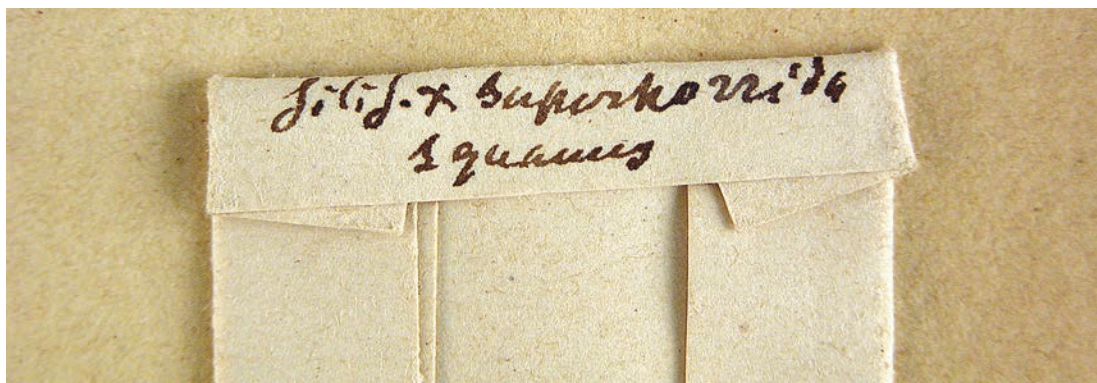 filif. x superhorrida
squamis